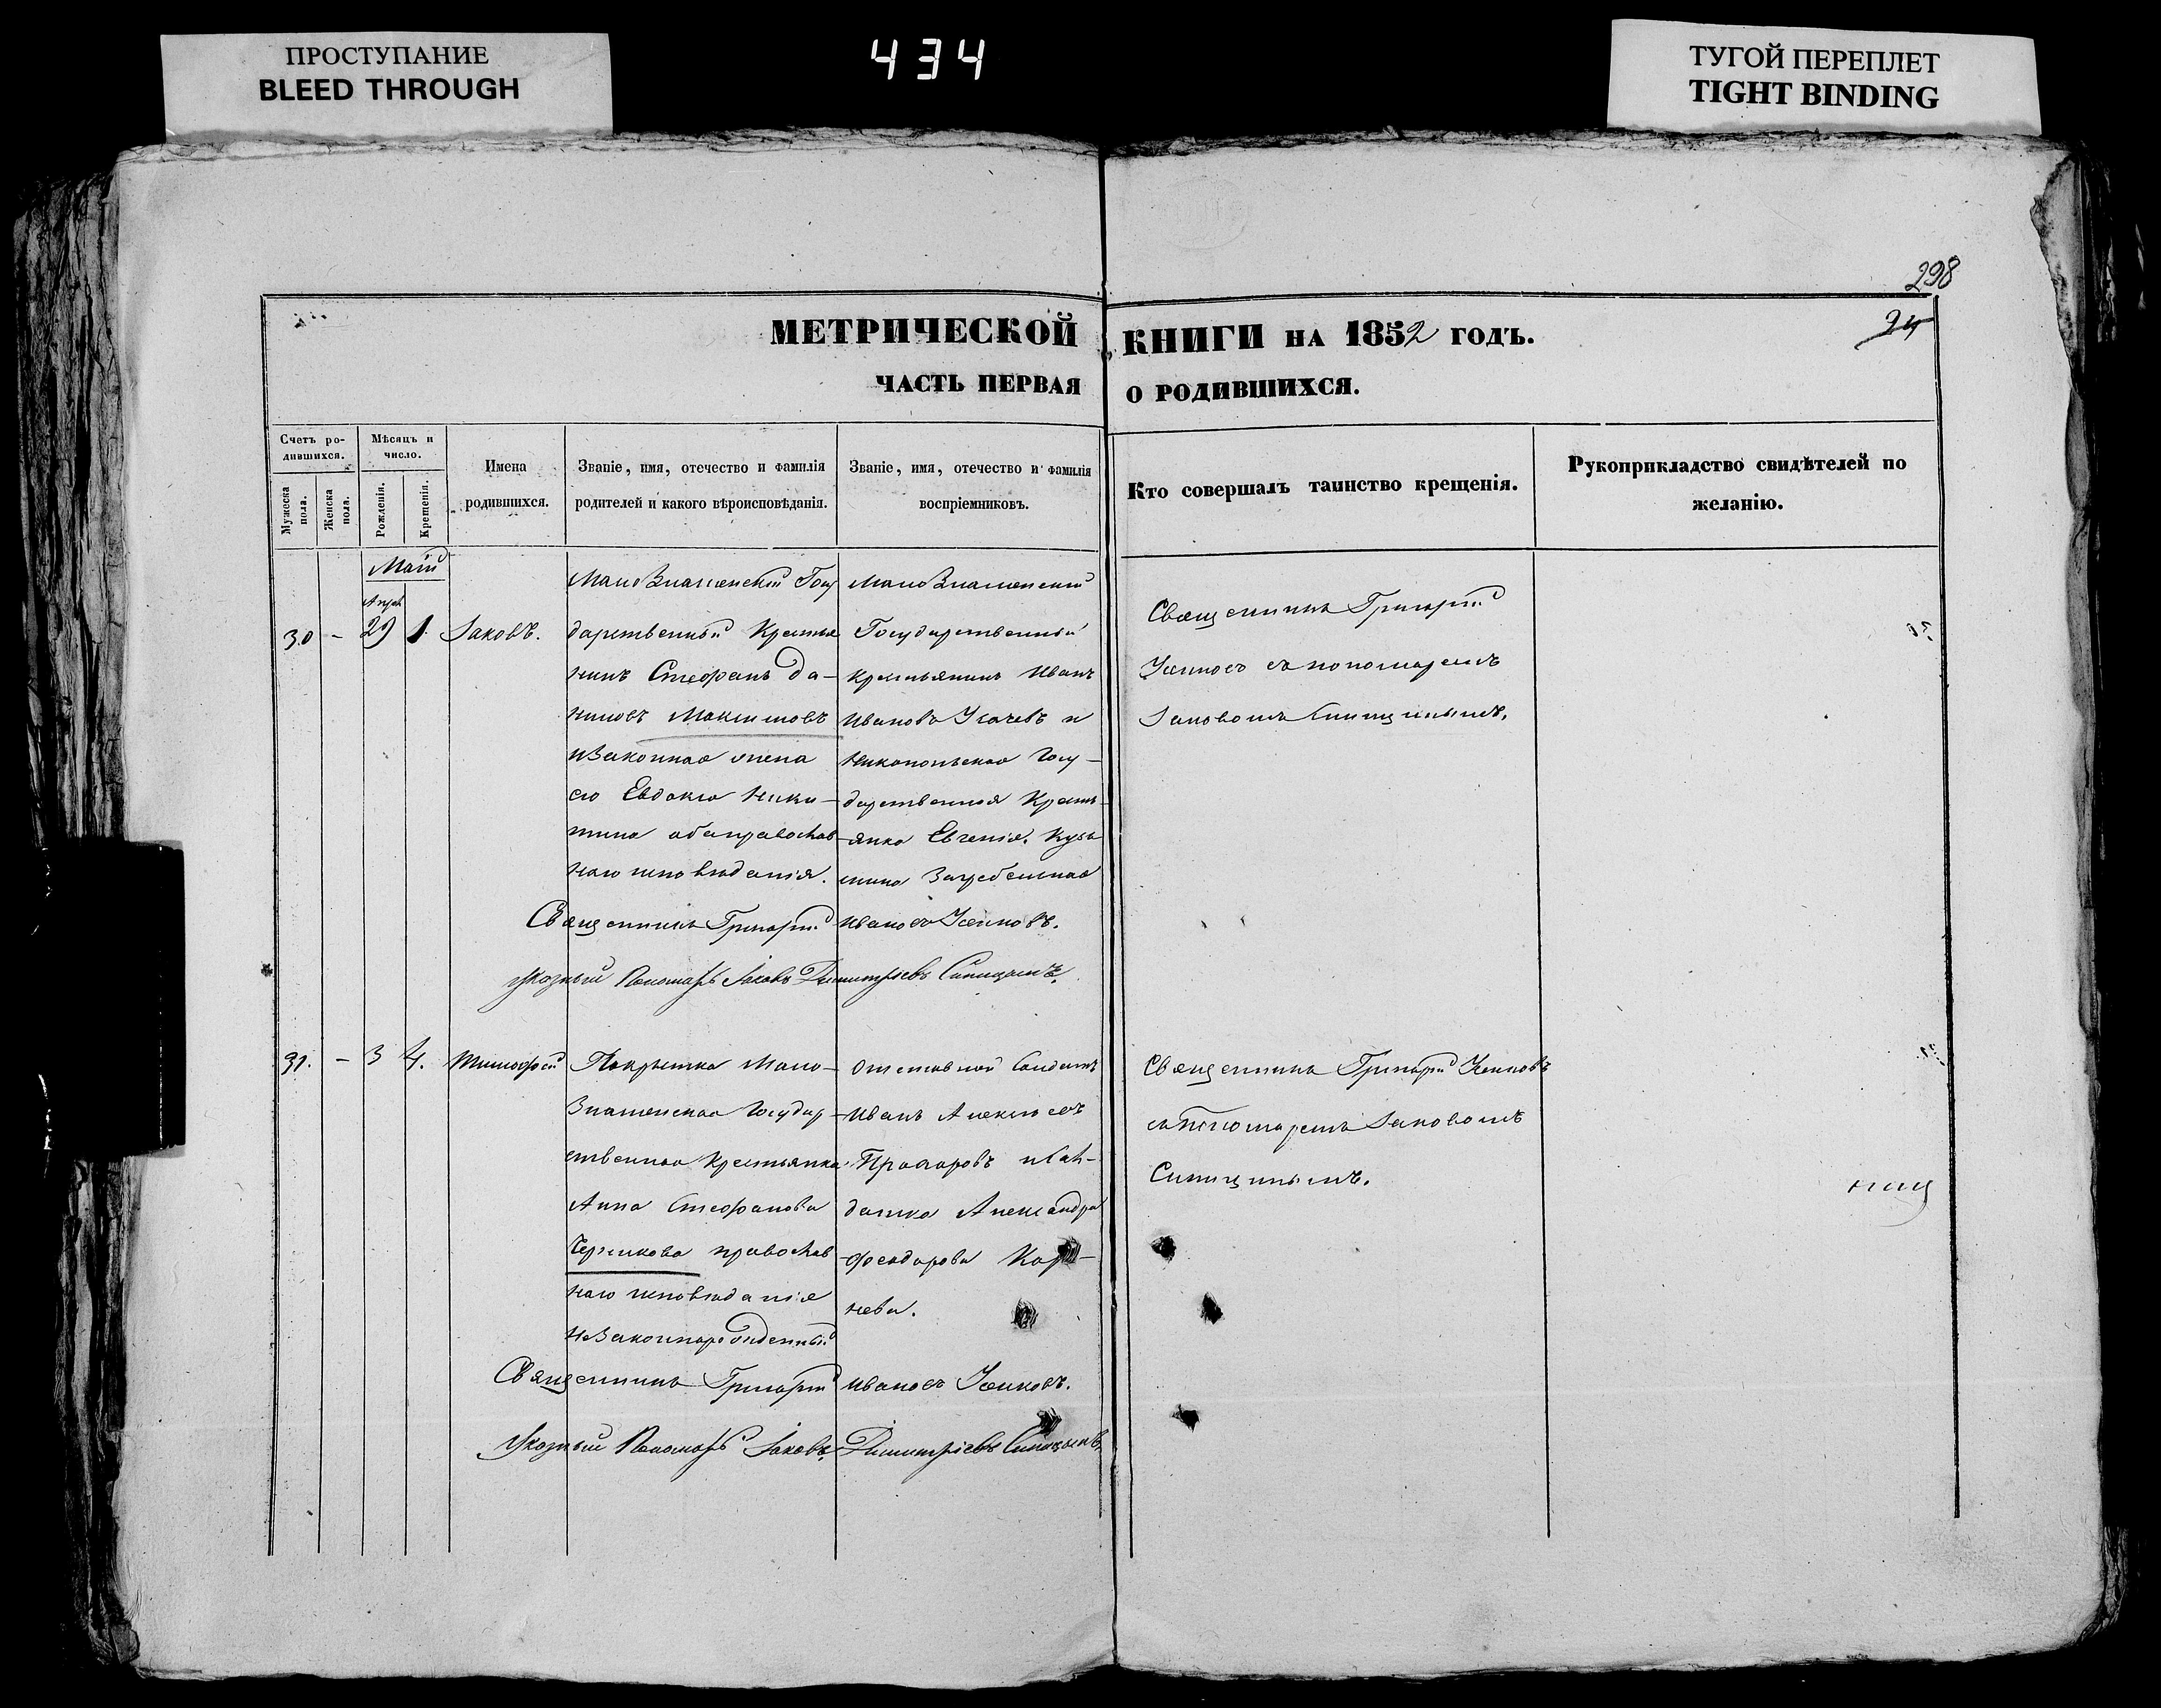 ПРОСТУПАНИЕ
BLEED THROUGH
434
ТУГОЙ ПЕРЕПЛЕТ
TIGHT BINDING
298
24
МЕТРИЧЕСКОЙ КНИГИ НА 1852 ГОДЪ.
ЧАСТЬ ПЕРВАЯ О РОДИВШИХСЯ.
Счетъ ро-
дившихся.
Мужеска пола.
Женска пола.
Мѣсяцъ и число.
Рожденія.
Крещенія.
Имена
родившихся.
Званіе, имя, отечество и фамилія
родителей и какого вѣроисповѣданія.
Званіе, имя, отечество и фамилія
воспріемниковъ.
Кто совершалъ таинство крещенія.
Рукоприкладство свидѣтелей по
желанію.
Маій
Апрѣл
30 - 29 1. Іаковъ.
МалоЗнаменскій Госу
дарственный Крестья
нинъ Стефанъ Да-
ниловъ Максимовъ
иЗаконная жена
его Евдокія Ники-
тина оба православ
наго исповѣданія.
МалоЗнаменскій
Государственный
Крестьянинъ Иванъ
Ивановъ Усачевъ и
Никопольская Госу-
дарственная Кресть-
янка Евгенія Кузь
мина Загребельная
Священникъ Григорій
Усиковъ съ пономаремъ
Іаковомъ Синицынымъ.
Священникъ Григорій Ивановъ Усиковъ.
Указный Пономарь Іаковъ Димитріевъ Синицынъ.
31. - 3 4. Тимофей
Покрытка Мало-
Знаменская Государ-
ственная Крестьянка
Анна Стефанова
Черникова православ
наго исповѣданія
неЗаконнорожденный
Отставной Солдатъ
Иванъ Алексѣевъ
Прохоровъ иСол-
датка Александра
Феодорова Кор-
нева.
Священникъ Григорій Усиковъ
съ Пономаремъ Іаковомъ
Синицынымъ.
Священникъ Григорій Ивановъ Усиковъ.
Указный Пономарь Іаковъ Димитріевъ Синицынъ.